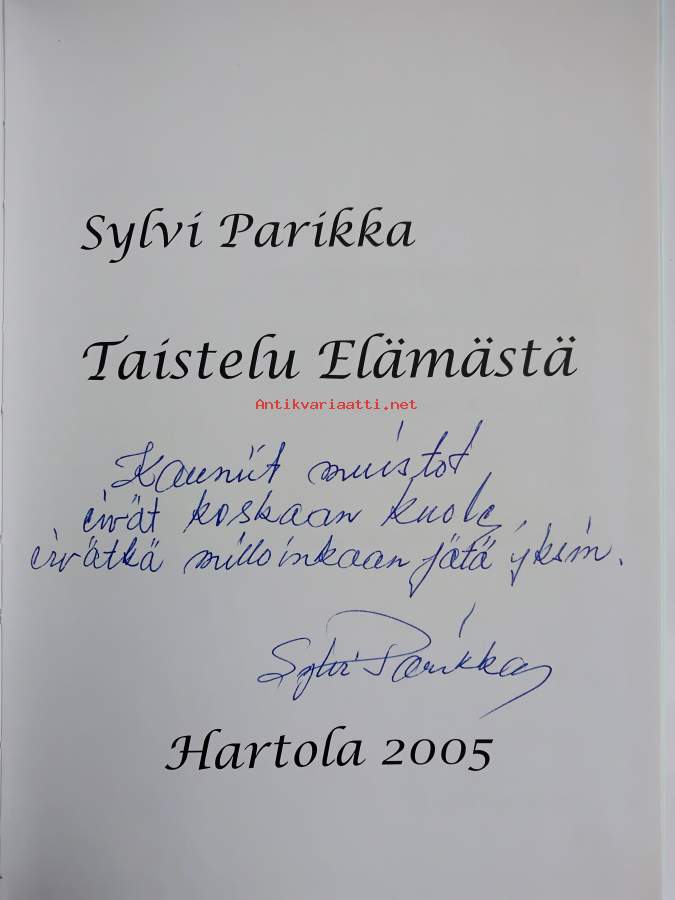 Sylvi Parikka
Taistelu Elämästä
Antikvariaatti.net
Kauniit muistot
eivät koskaan kuole,
eivätkä milloinkaan jätä yksin.
Sylvi Parikka
Hartola 2005